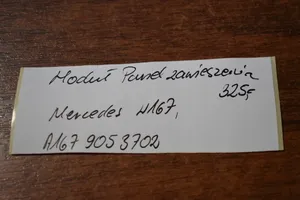 Moduł Panel zawieszenia
325,-
Mercedes W167,
A167 905 3702